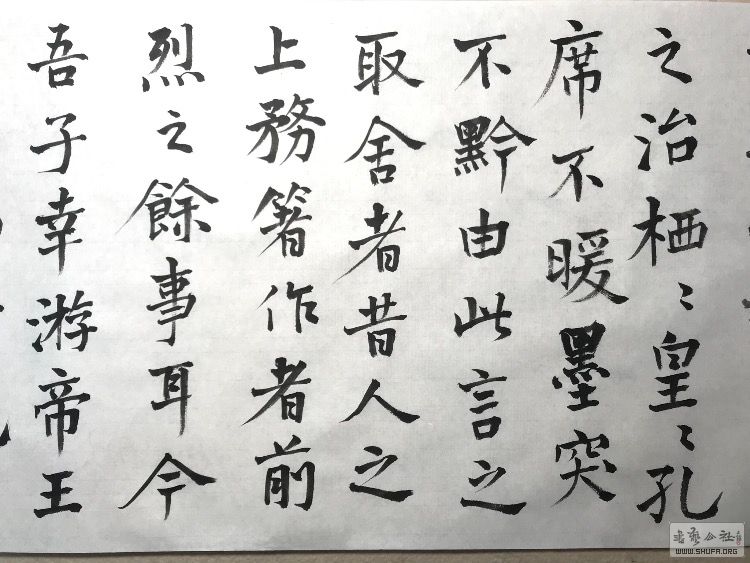 之治栖〻皇〻孔
席不暖墨突
不黔由此言之
取舍者昔人之
上務箸作者前
烈之餘事耳今
吾子幸游帝王
书艺公社
WWW.SHUFA.ORG